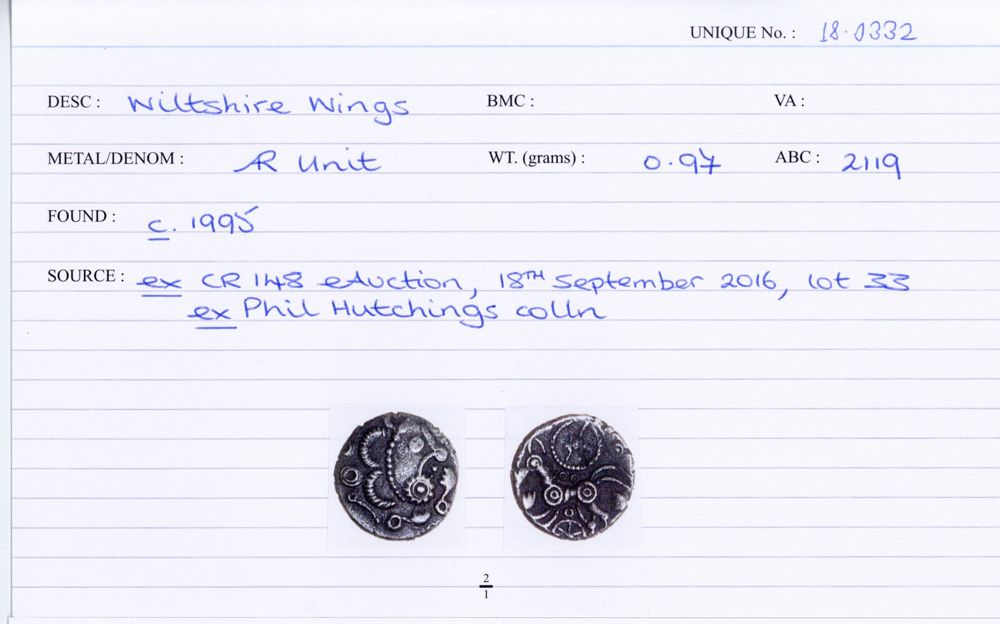 UNIQUE No. : 18.0332
DESC : Wiltshire Wings BMC : VA :
METAL/DENOM : AR Unit WT. (grams) : 0.97 ABC : 2119
FOUND : c. 1995
SOURCE : ex CR 148 eAuction, 18TH September 2016, lot 33
ex Phil Hutchings colln
2
1